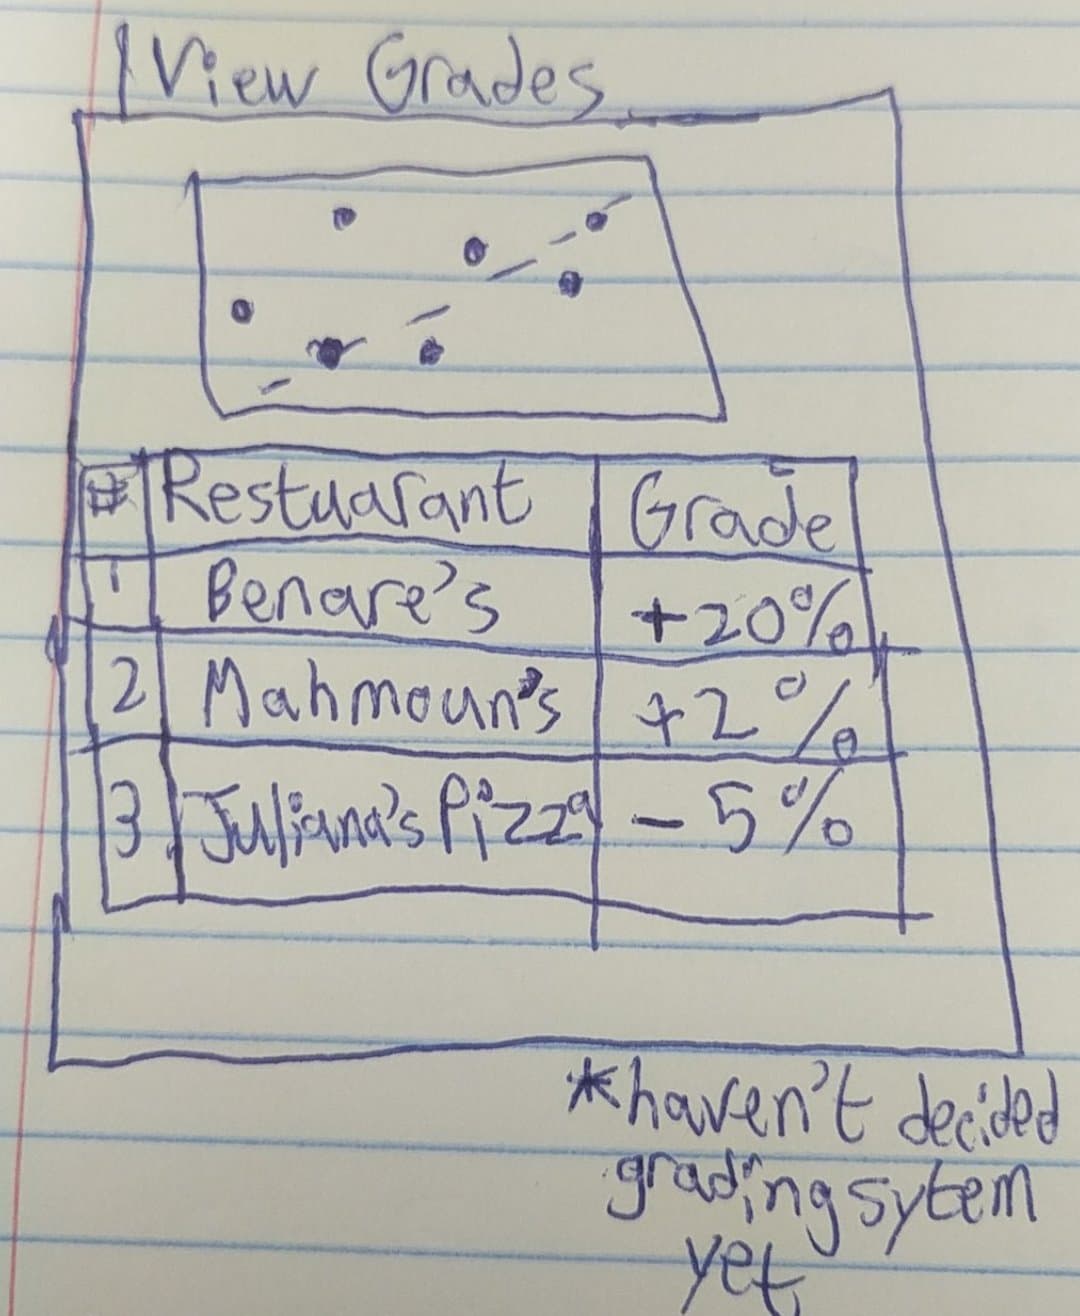 /View Grades
# Restuarant Grade
1 Benare's +20%
2 Mahmoun's +2%
3 Juliana's Pizza -5%
*haven't decided
grading sytem
yet